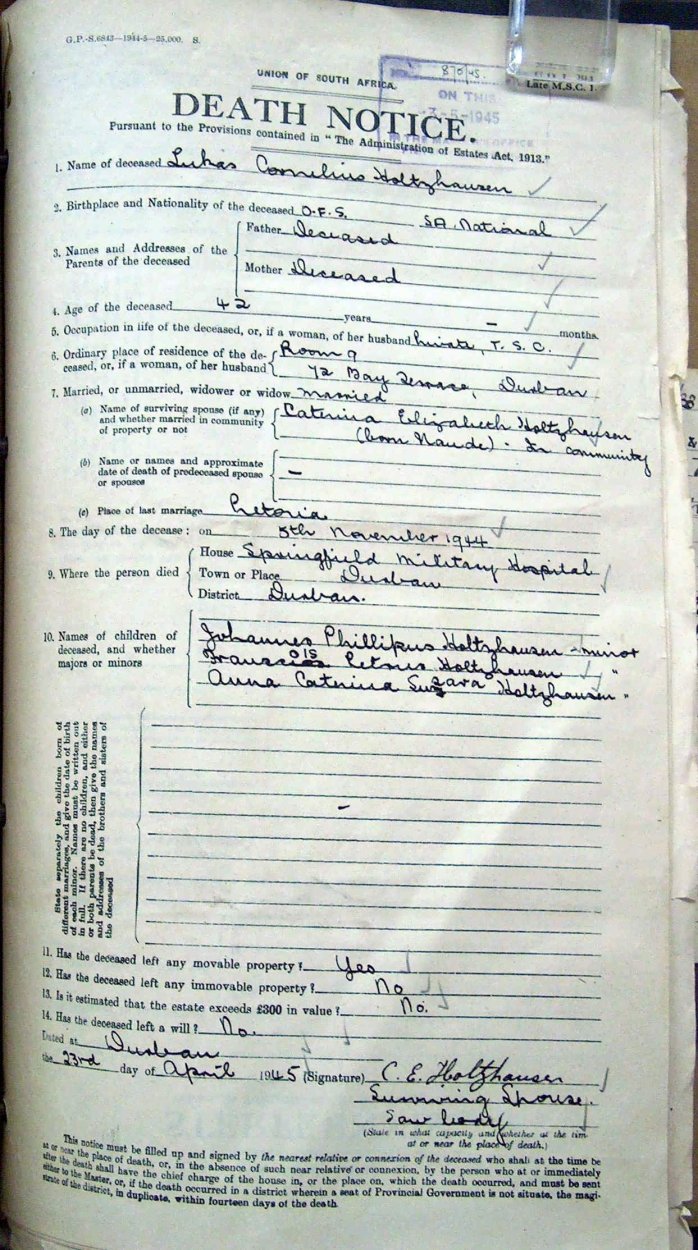 G.P.-S.6843—1944-5—25,000. S.
870/45.
UNION OF SOUTH AFRICA.
Late M.S.C. 1.
ON THIS
3-5-1945
IN THE MASTER'S OFFICE
DEATH NOTICE.
Pursuant to the Provisions contained in "The Administration of Estates Act, 1913."
1. Name of deceased Lukas Cornelius Holtzhausen
2. Birthplace and Nationality of the deceased O.F.S. SA. National
3. Names and Addresses of the Parents of the deceased
Father Deceased
Mother Deceased
4. Age of the deceased 42 years - months.
5. Occupation in life of the deceased, or, if a woman, of her husband Private, T.S.C.
6. Ordinary place of residence of the deceased, or, if a woman, of her husband
Room 9
72 Bay Terrace, Durban
7. Married, or unmarried, widower or widow married
(a) Name of surviving spouse (if any) and whether married in community of property or not
Caterina Elizabeth Holtzhausen
(born Naude). In community
(b) Name or names and approximate date of death of predeceased spouse or spouses
-
(c) Place of last marriage Pretoria
8. The day of the decease: on 5th November 1944
9. Where the person died
House Springfield Military Hospital
Town or Place Durban
District Durban.
10. Names of children of deceased, and whether majors or minors
Johannes Phillipus Holtzhausen - minor
Fransois Petrus Holtzhausen "
Anna Caterina Suzara Holtzhausen "
State separately the children born of
different marriages, and give the date of birth
of each minor. Names must be written out
in full. If there are no children, and either
or both parents be dead, then give the names
and addresses of the brothers and sisters of
the deceased
-
11. Has the deceased left any movable property? Yes
12. Has the deceased left any immovable property? No
13. Is it estimated that the estate exceeds £300 in value? No.
14. Has the deceased left a will? No.
Dated at Durban
the 23rd day of April 1945 (Signature) C. E. Holtzhausen
Surviving Spouse.
Saw body
(State in what capacity and whether at the tim
at or near the place of death.)
This notice must be filled up and signed by the nearest relative or connexion of the deceased who shall at the time be
at or near the place of death, or, in the absence of such near relative or connexion, by the person who at or immediately
after the death shall have the chief charge of the house in, or the place on, which the death occurred, and must be sent
either to the Master, or, if the death occurred in a district wherein a seat of Provincial Government is not situate, the magi-
strate of the district, in duplicate, within fourteen days of the death.